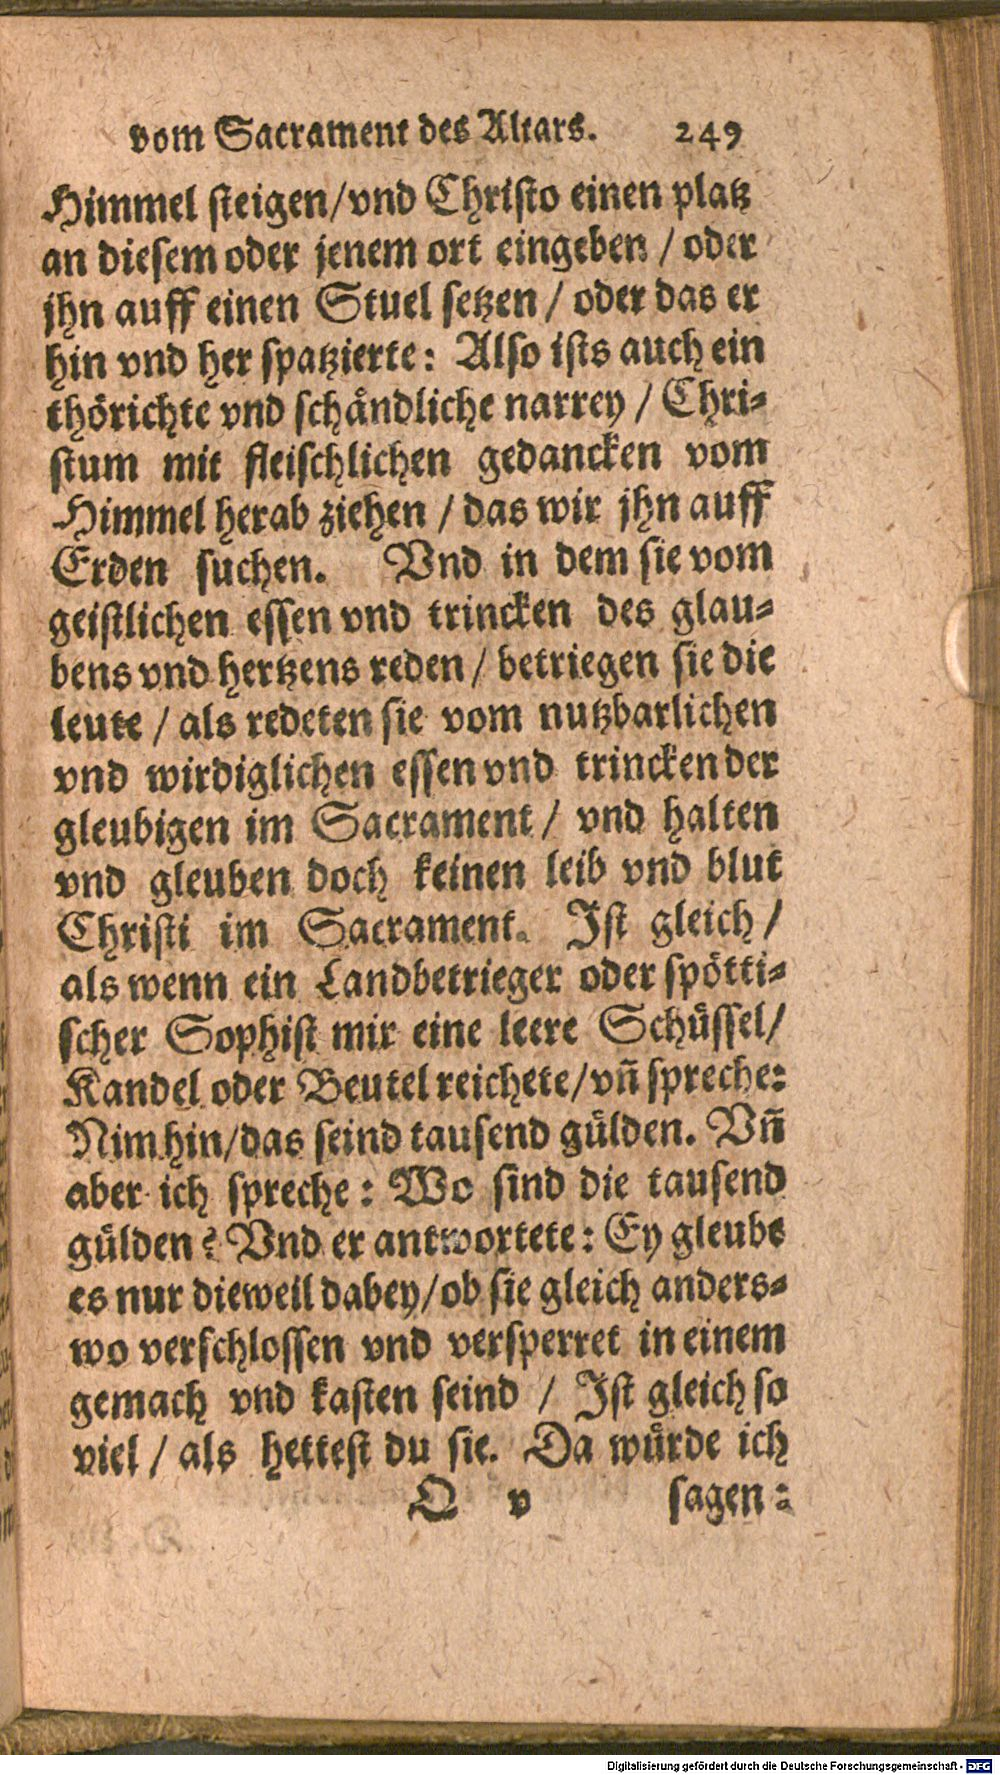 vom Sacrament des Altars. 249
Himmel steigen/vnd Christo einen platz
an diesem oder jenem ort eingeben / oder
jhn auff einen Stuel setzen / oder das er
hin vnd her spatzierte: Also ists auch ein
thörichte vnd schändliche narrey / Chri-
stum mit fleischlichen gedancken vom
Himmel herab ziehen / das wir jhn auff
Erden suchen. Vnd in dem sie vom
geistlichen essen vnd trincken des glau-
bens vnd hertzens reden / betriegen sie die
leute / als redeten sie vom nutzbarlichen
vnd wirdiglichen essen vnd trincken der
gleubigen im Sacrament / vnd halten
vnd gleuben doch keinen leib vnd blut
Christi im Sacrament. Ist gleich /
als wenn ein Landbetrieger oder spötti-
scher Sophist mir eine leere Schüssel/
Kandel oder Beutel reichete/vn̄ spreche:
Nim hin/das seind tausend gülden. Vn̄
aber ich spreche: Wo sind die tausend
gülden? Vnd er antwortete: Ey gleubs
es nur dieweil dabey/ob sie gleich anders-
wo verschlossen vnd versperret in einem
gemach vnd kasten seind / Ist gleich so
viel / als hettest du sie. Da würde ich
O v sagen:
Digitalisierung gefördert durch die Deutsche Forschungsgemeinschaft - DFG